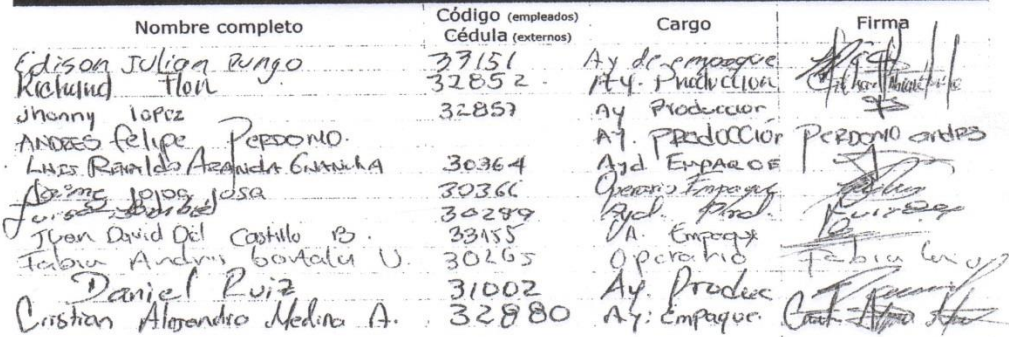 Nombre completo Código (empleados) Cédula (externos) Cargo Firma
Edison Julian Pungo 37151 Ay de empaque
Richard Flor 32852 Ay. Produccion
Jhonny lopez 32857 Ay Produccion
ANDRES felipe PERDOMO. AY. PRODUCCIOr PERDOMO andres
LUIS RENALDO ARANDA GUANCHA 30364 Ayd EMPAQUE
Jaime Jojoa Josa 30366 Operario Empaque
30289 Ayd. Prod.
Juan David Del Castillo B. 33155 A. Empaque
Fabian Andres U. 30265 Operario Fabian
Daniel Ruiz 31002 Ay. Produc
Cristian Alejandro Medina A. 32880 Ay: Empaque.